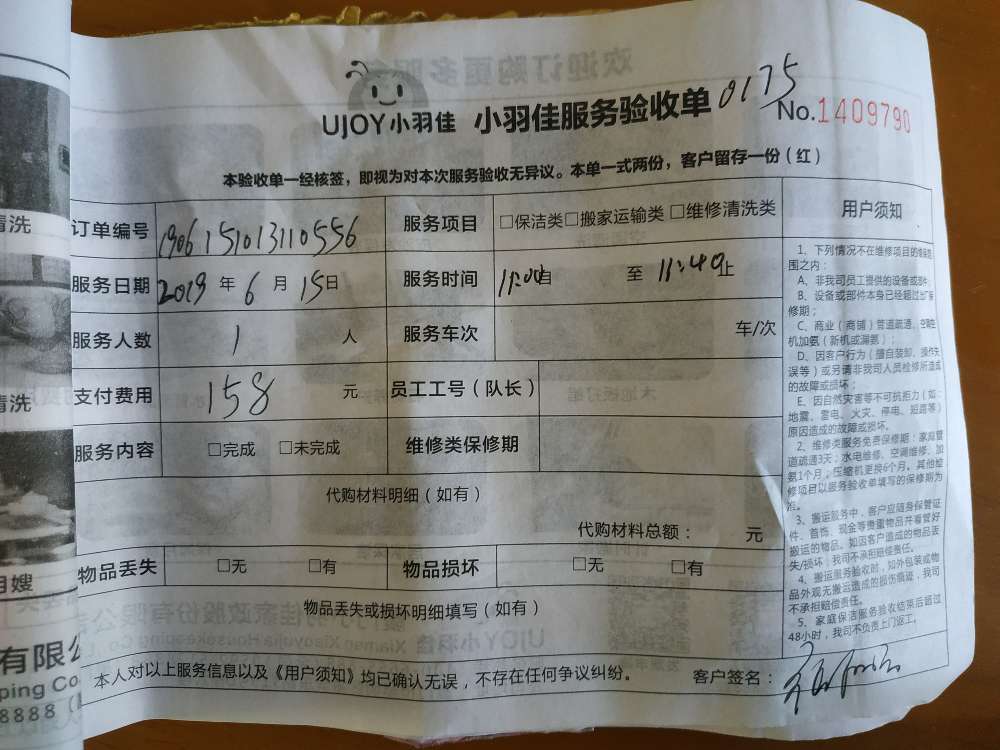 UJOY小羽佳 小羽佳服务验收单 0175
No.1409790
本验收单一经核签，即视为对本次服务验收无异议。本单一式两份，客户留存一份（红）
订单编号 1906151013110556 服务项目 □保洁类□搬家运输类 □维修清洗类
服务日期 2019 年 6 月 15日 服务时间 11:00自 至 11:40止
服务人数 1 人 服务车次 车/次
支付费用 158 元 员工工号（队长）
服务内容 □完成 □未完成 维修类保修期
代购材料明细（如有）
代购材料总额： 元
物品丢失 □无 □有 物品损坏 □无 □有
物品丢失或损坏明细填写（如有）
本人对以上服务信息以及《用户须知》均已确认无误，不存在任何争议纠纷。 客户签名：
用户须知
1、下列情况不在维修项目的维保范
围之内：
A、非我司员工提供的设备或部件；
B、设备或部件本身已经超过出厂保
修期；
C、商业（商铺）管道疏通、空调空
机加氨（新机或漏氨）；
D、因客户行为（擅自装卸、操作失
误等）或另请非我司人员检修所造成
的故障或损坏；
E、因自然灾害等不可抗拒力（如：
地震、雷电、火灾、停电、短路等）
原因造成的故障或损坏。
2、维修类服务免费保修期：家庭管
道疏通3天；水电维修、空调维修、加
氨1个月；压缩机更换6个月，其他维
修项目以服务验收单填写的保修期为
准。
3、搬运服务中，客户应随身保管证
件、首饰、现金等贵重物品并看管好
搬运的物品。如因客户造成的物品丢
失/损坏，我司不承担赔偿责任。
4、搬运服务验收时，如外包装或物
品外观无搬运造成的损伤痕迹，我司
不承担赔偿责任。
5、家庭保洁服务验收结束后超过
48小时，我司不负责上门返工。
清洗
清洗
月嫂
有限公
ping Co
8888